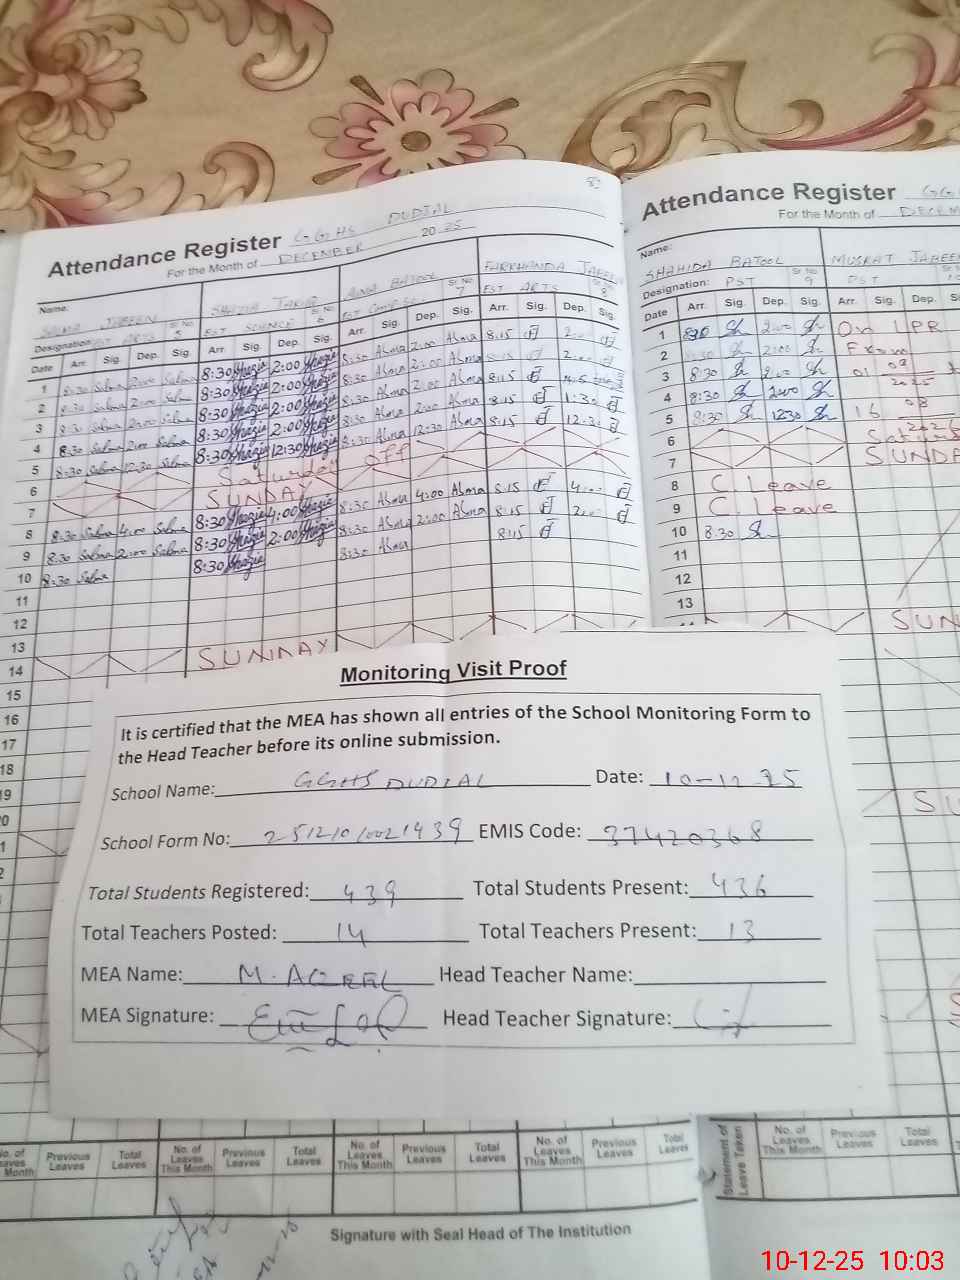 Attendance Register GGHS DUDIAL
For the Month of DECEMBER 2025
Name:
SALMA JABEEN
SHAZIA TARIQ
BATOOL
FARKHANDA JABEEN
Designation: EST ARTS Sr No 5
EST SCIENCE Sr No 6
Sr No 7
EST ARTS Sr No 8
Date Arr. Sig. Dep. Sig. Arr. Sig. Dep. Sig. Arr. Sig. Dep. Sig. Arr. Sig. Dep. Sig.
1 8:30 Salma 2:00 Salma 8:30 Shazia 2:00 Shazia 8:30 Alma 2:00 Alma 8:15 2:00
2 8:30 Salma 2:00 Salma 8:30 Shazia 2:00 Shazia 8:30 Alma 2:00 Alma 8:15 2:00
3 8:30 Salma 2:00 Salma 8:30 Shazia 2:00 Shazia 8:30 Alma 2:00 Alma 8:15
4 8:30 Salma 2:00 Salma 8:30 Shazia 2:00 Shazia 8:30 Alma 2:00 Alma 8:15 1:30
5 8:30 Salma 12:30 Salma 8:30 Shazia 12:30 Shazia 8:30 Alma 12:30 Alma 8:15 12:30
6 Saturday off
7 SUNDAY
8 8:30 Salma 4:00 Salma 8:30 Shazia 4:00 Shazia 8:30 Alma 4:00 Alma 8:15 4:00
9 8:30 Salma 2:00 Salma 8:30 Shazia 2:00 Shazia 8:30 Alma 2:00 Alma 8:15 2:00
10 8:30 Salma 8:30 Shazia 8:30 Alma 8:15
11
12
13
14 SUNDAY
15
16
17
18
19
Attendance Register
For the Month of
Name:
SHAHIDA BATOOL
JABEEN
Designation: PST Sr No 9
PST
Date Arr. Sig. Dep. Sig. Arr. Sig. Dep.
1 8:30 Sh 2:00 Sh On LPR
2 8:30 Sh 2:00 Sh From
3 8:30 Sh 2:00 Sh 01 09 2025
4 8:30 Sh 2:00 Sh
5 8:30 Sh 1230 Sh
6
7
8 C. Leave
9 C. Leave
10 8:30 Sh
11
12
13
Monitoring Visit Proof
It is certified that the MEA has shown all entries of the School Monitoring Form to
the Head Teacher before its online submission.
School Name: GGHS DUDIAL Date: 10-12 25
School Form No: EMIS Code: 37420368
Total Students Registered: 439 Total Students Present: 436
Total Teachers Posted: 14 Total Teachers Present: 13
MEA Name: M. AQEEL Head Teacher Name:
MEA Signature: Head Teacher Signature:
Previous Leaves Total Leaves No. of Leaves This Month Previous Leaves Total Leaves No. of Leaves This Month Previous Leaves Total Leaves No. of Leaves This Month Previous Leaves Total Leaves
Statement of Leave Taken No. of Leaves This Month Previous Leaves Total Leaves
Signature with Seal Head of The Institution
10-12-25 10:03